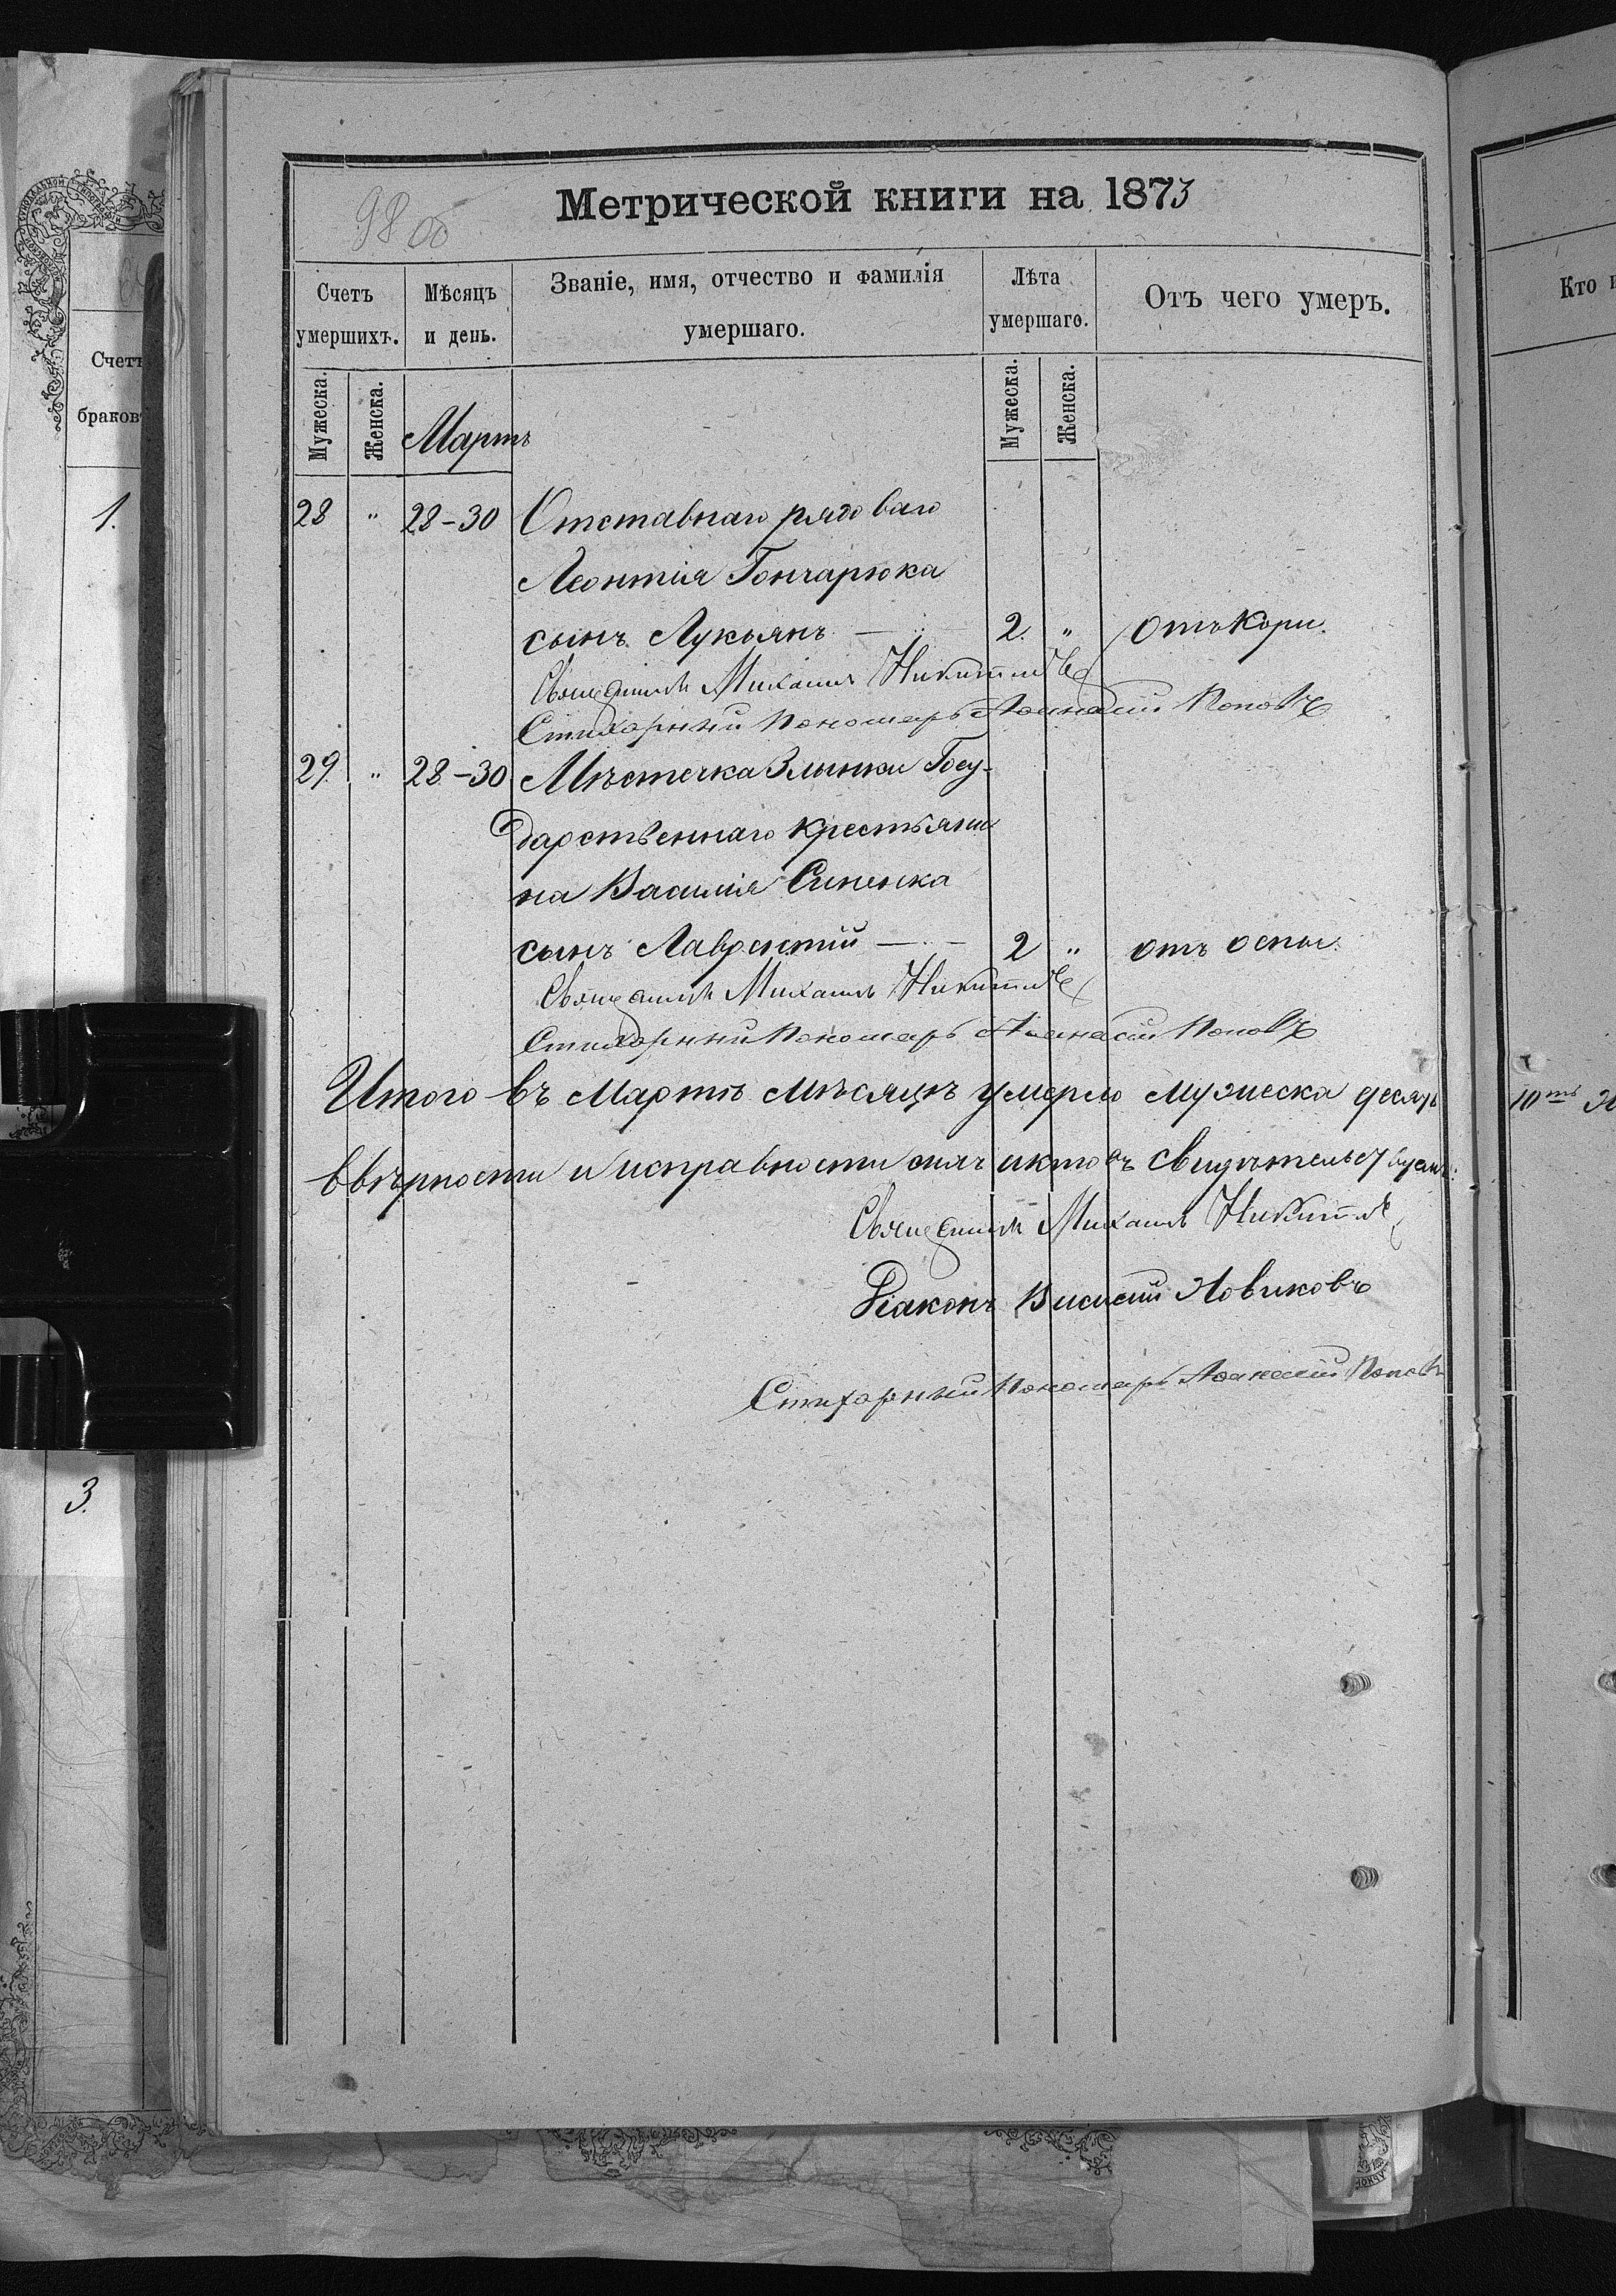 98 об
Метрической книги на 1873
Счетъ умершихъ.
Мѣсяцъ и день.
Званіе, имя, отчество и фамилія умершаго.
Лѣта умершаго.
Отъ чего умеръ.
Мужеска.
Женска.
Мартъ
Мужеска.
Женска.
28 " 28-30 Отставнаго рядоваго
Леонтія Гончарюка
сынъ Лукьянъ — 2. " Отъ Кори.
Священникъ Михаилъ Никитинъ
Стихарный Пономарь Аѳанасій Поповъ
29. " 28-30 Мѣстечка Злынки Госу-
дарственнаго крестьяни
на Василія Синенка
сынъ Лаврентій — 2 " отъ оспы.
Священникъ Михаилъ Никитинъ
Стихарный Пономарь Аѳанасій Поповъ
Итого въ Мартѣ Мѣсяцѣ умерло мужеска десять
ввѣрности и исправности актовъ свидѣтельствуемъ:
Священникъ Михаилъ Никитинъ
Діаконъ Василій Новиковъ
Стихарный Пономарь Аѳанасій Поповъ
Счетъ
браковъ
1.
3.
Кто и
10